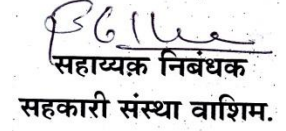 सहाय्यक़ निबंधक
सहकारी संस्था वाशिम.